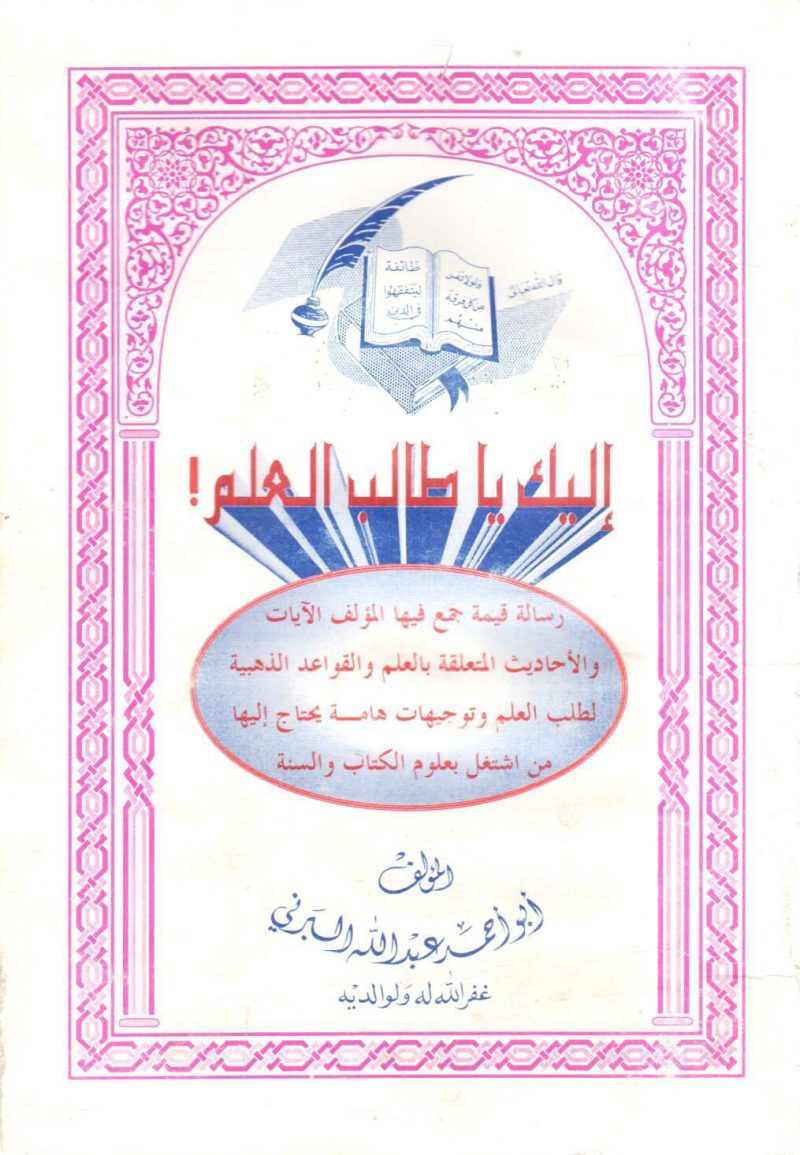 قال الله تعالى
فلولا نفر
من كل فرقة
منهم
طائفة
ليتفقهوا
في الدين
إليك يا طالب العلم!
رسالة قيمة جمع فيها المؤلف الآيات
والأحاديث المتعلقة بالعلم والقواعد الذهبية
لطلب العلم وتوجيهات هامـــة يحتاج إليها
من اشتغل بعلوم الكتاب والسنة
المؤلف
أبو أحمد عبد الله البرني
غفر الله له ولوالديه